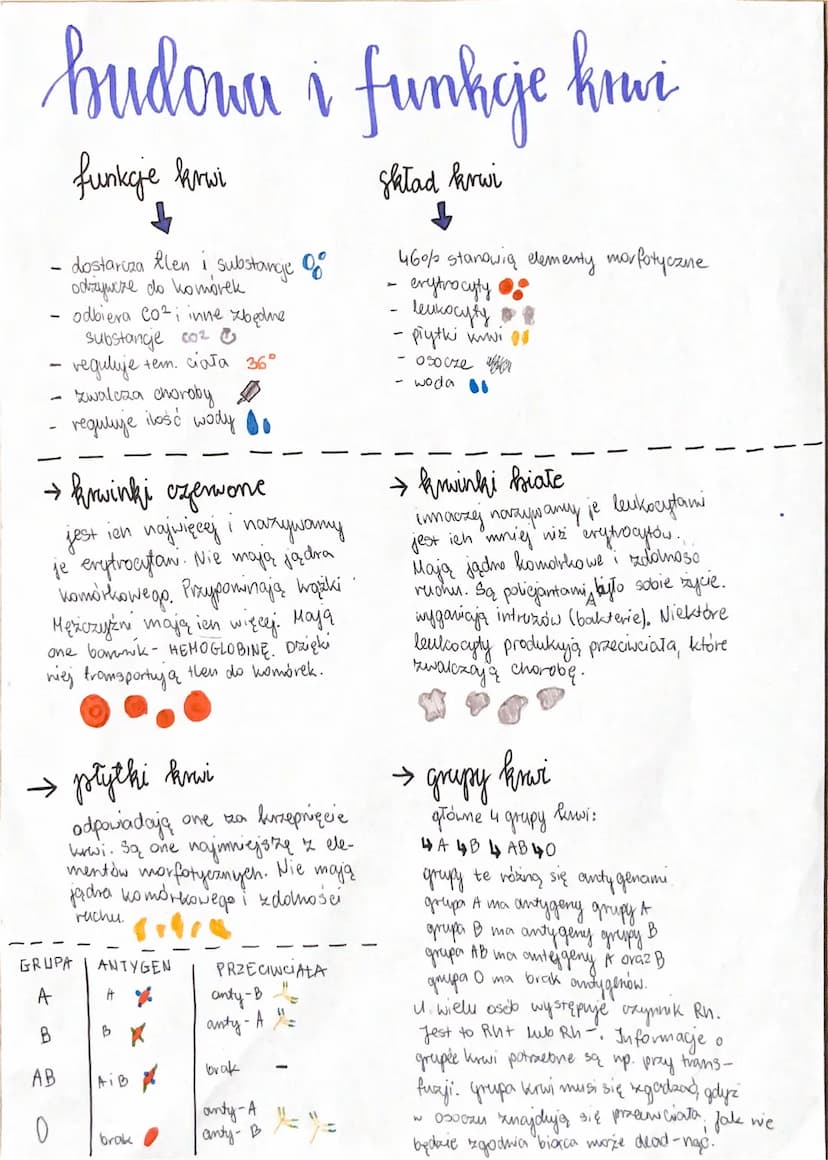 budowa i funkcje krwi
funkcje krwi
- dostarcza tlen i substancje
odżywcze do komórek
- odbiera CO² i inne zbędne
substancje CO2
- reguluje tem. ciała 36°
- zwalcza choroby
- reguluje ilość wody
skład krwi
46% stanowią elementy morfotyczne
- erytrocyty
- leukocyty
- płytki krwi
- osocze
- woda
→ krwinki czerwone
jest ich najwięcej i nazywamy
je erytrocytami. Nie mają jądra
komórkowego. Przypominają krążki
Mężczyźni mają ich więcej. Mają
one barwnik - HEMOGLOBINĘ. Dzięki
niej transportują tlen do komórek.
→ krwinki białe
inaczej nazywamy je leukocytami
jest ich mniej niż erytrocytów.
Mają jądro komórkowe i zdolność
ruchu. Są policjantami, było sobie życie.
wyganiają intruzów (bakterie). Niektóre
leukocyty produkują przeciwciała, które
zwalczają chorobę.
→ płytki krwi
odpowiadają one za krzepnięcie
krwi. Są one najmniejszę z ele-
mentów morfotycznych. Nie mają
jądra komórkowego i zdolności
ruchu.
→ grupy krwi
główne 4 grupy krwi:
↳ A ↳ B ↳ AB ↳ O
grupy te różnią się antygenami
grupa A ma antygeny grupy A
grupa B ma antygeny grupy B
grupa AB ma antygeny A oraz B
grupa O ma brak antygenów.
U wielu osób występuje czynnik Rh.
Jest to Rh+ lub Rh-. Informacje o
grupie krwi potrzebne są np. przy trans-
fuzji. Grupa krwi musi się zgadzać, gdyż
w osoczu znajdują się przeciwciała. Jak nie
będzie zgodna biorca może dead-nąć.
GRUPA ANTYGEN PRZECIWCIAŁA
A A anty-B
B B anty-A
AB A i B brak -
O brak anty-A
anty-B